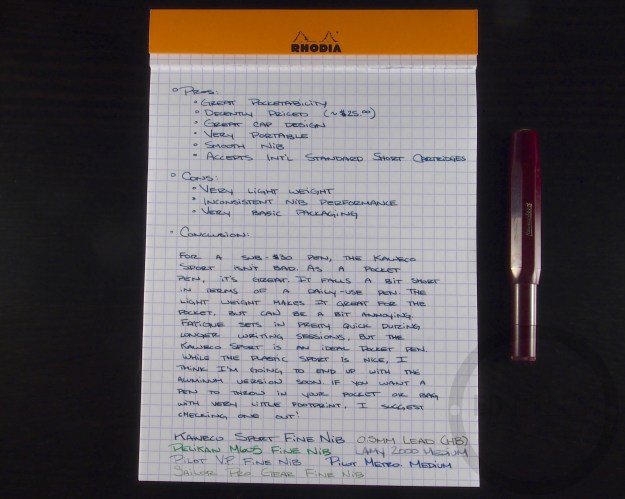 RHODIA
Pros:
Great Pocketability
Decently Priced (~$25.00)
Great Cap Design
Very Portable
Smooth Nib
Accepts Int'l Standard Short Cartridges
Cons:
Very Light Weight
Inconsistent Nib Performance
Very Basic Packaging
Conclusion:
For a sub-$30 pen, the Kaweco
Sport isn't bad. As a pocket
pen, it's great. It falls a bit short
in terms of a daily-use pen. The
light weight makes it great for the
pocket, but can be a bit annoying.
Fatigue sets in pretty quick during
longer writing sessions, but the
Kaweco Sport is an ideal pocket pen.
While the plastic Sport is nice, I
think I'm going to end up with the
aluminum version soon. If you want a
pen to throw in your pocket or bag
with very little footprint, I suggest
checking one out!
Kaweco Sport Fine Nib 0.5mm Lead (HB)
Pelikan M605 Fine Nib Lamy 2000 Medium
Pilot V.P. Fine Nib Pilot Metro Medium
Sailor Pro Gear Fine Nib